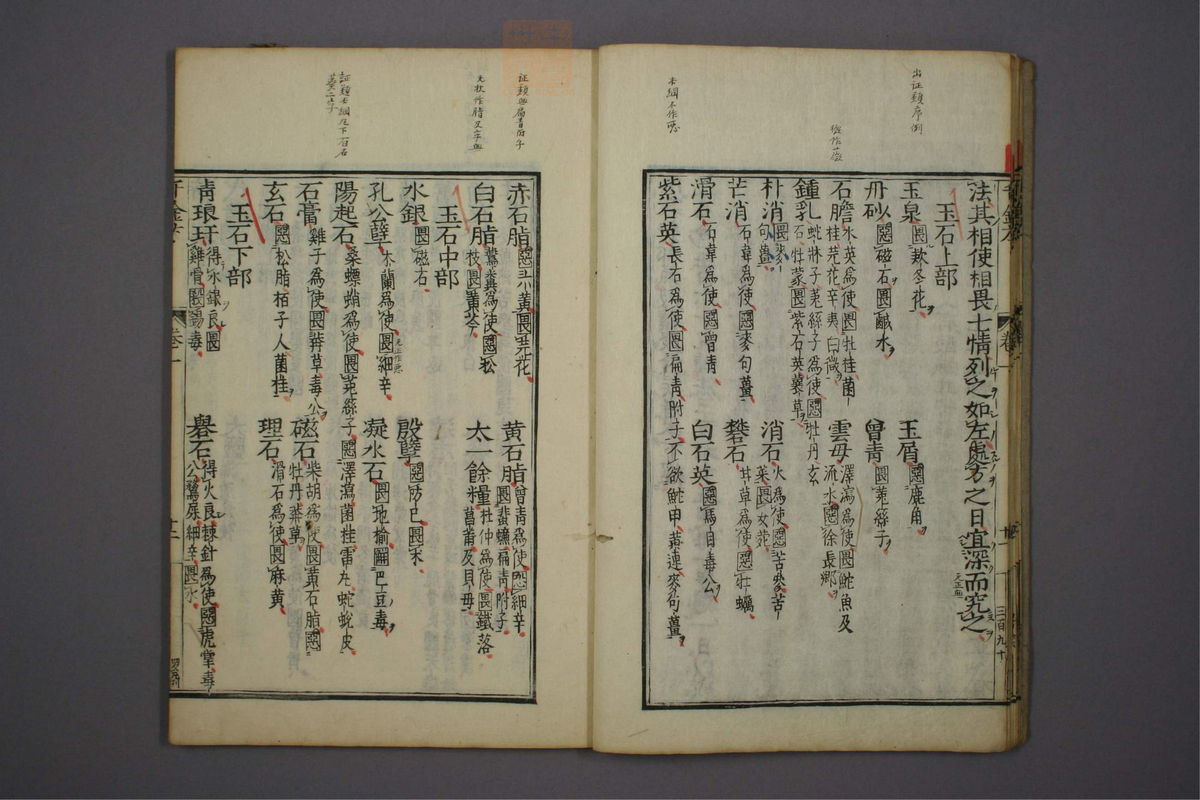 法其相使相畏七情列之如左處方之日宜深而究之
玉石上部
玉泉 畏欵冬花
玉屑 惡鹿角
丹砂 惡磁石畏鹹水
曾青 畏菟絲子
石膽 水英爲使畏牡桂菌桂芫花辛夷白薇
雲母 澤瀉爲使畏鮀魚及流水惡徐長卿
鍾乳 蛇牀子菟絲子爲使惡牡丹玄石牡蒙畏紫石英蘘草
朴消 畏麥句薑
消石 火爲使惡苦參苦菜畏女菀
芒消 石韋爲使惡麥句薑
礬石 甘草爲使惡牡蠣
滑石 石韋爲使惡曾青
白石英 惡馬目毒公
紫石英 長石爲使畏扁青附子不欲鮀甲黃連麥句薑
赤石脂 惡大黃畏芫花
黃石脂 曾青爲使惡細辛畏蜚蠊扁青附子
白石脂 鷰糞爲使惡松脂畏黃芩
太一餘糧 杜仲爲使畏鐵落菖蒲及貝母
玉石中部
水銀 畏磁石
殷孽 惡防己畏朮
孔公孽 木蘭爲使畏細辛
凝水石 畏地榆解巴豆毒
陽起石 桑螵蛸爲使畏菟絲子惡澤瀉菌桂雷丸蛇蛻皮
石膏 雞子爲使畏莽草毒公
磁石 柴胡爲使畏黃石脂惡牡丹莽草
玄石 惡松脂栢子人菌桂
理石 滑石爲使畏麻黃
玉石下部
靑琅玕 得水銀良畏雞骨殺錫毒
礜石 得火良棘針爲使惡虎掌毒公鶩屎細辛畏水
出证類序例
本綱不作惡
三百九十